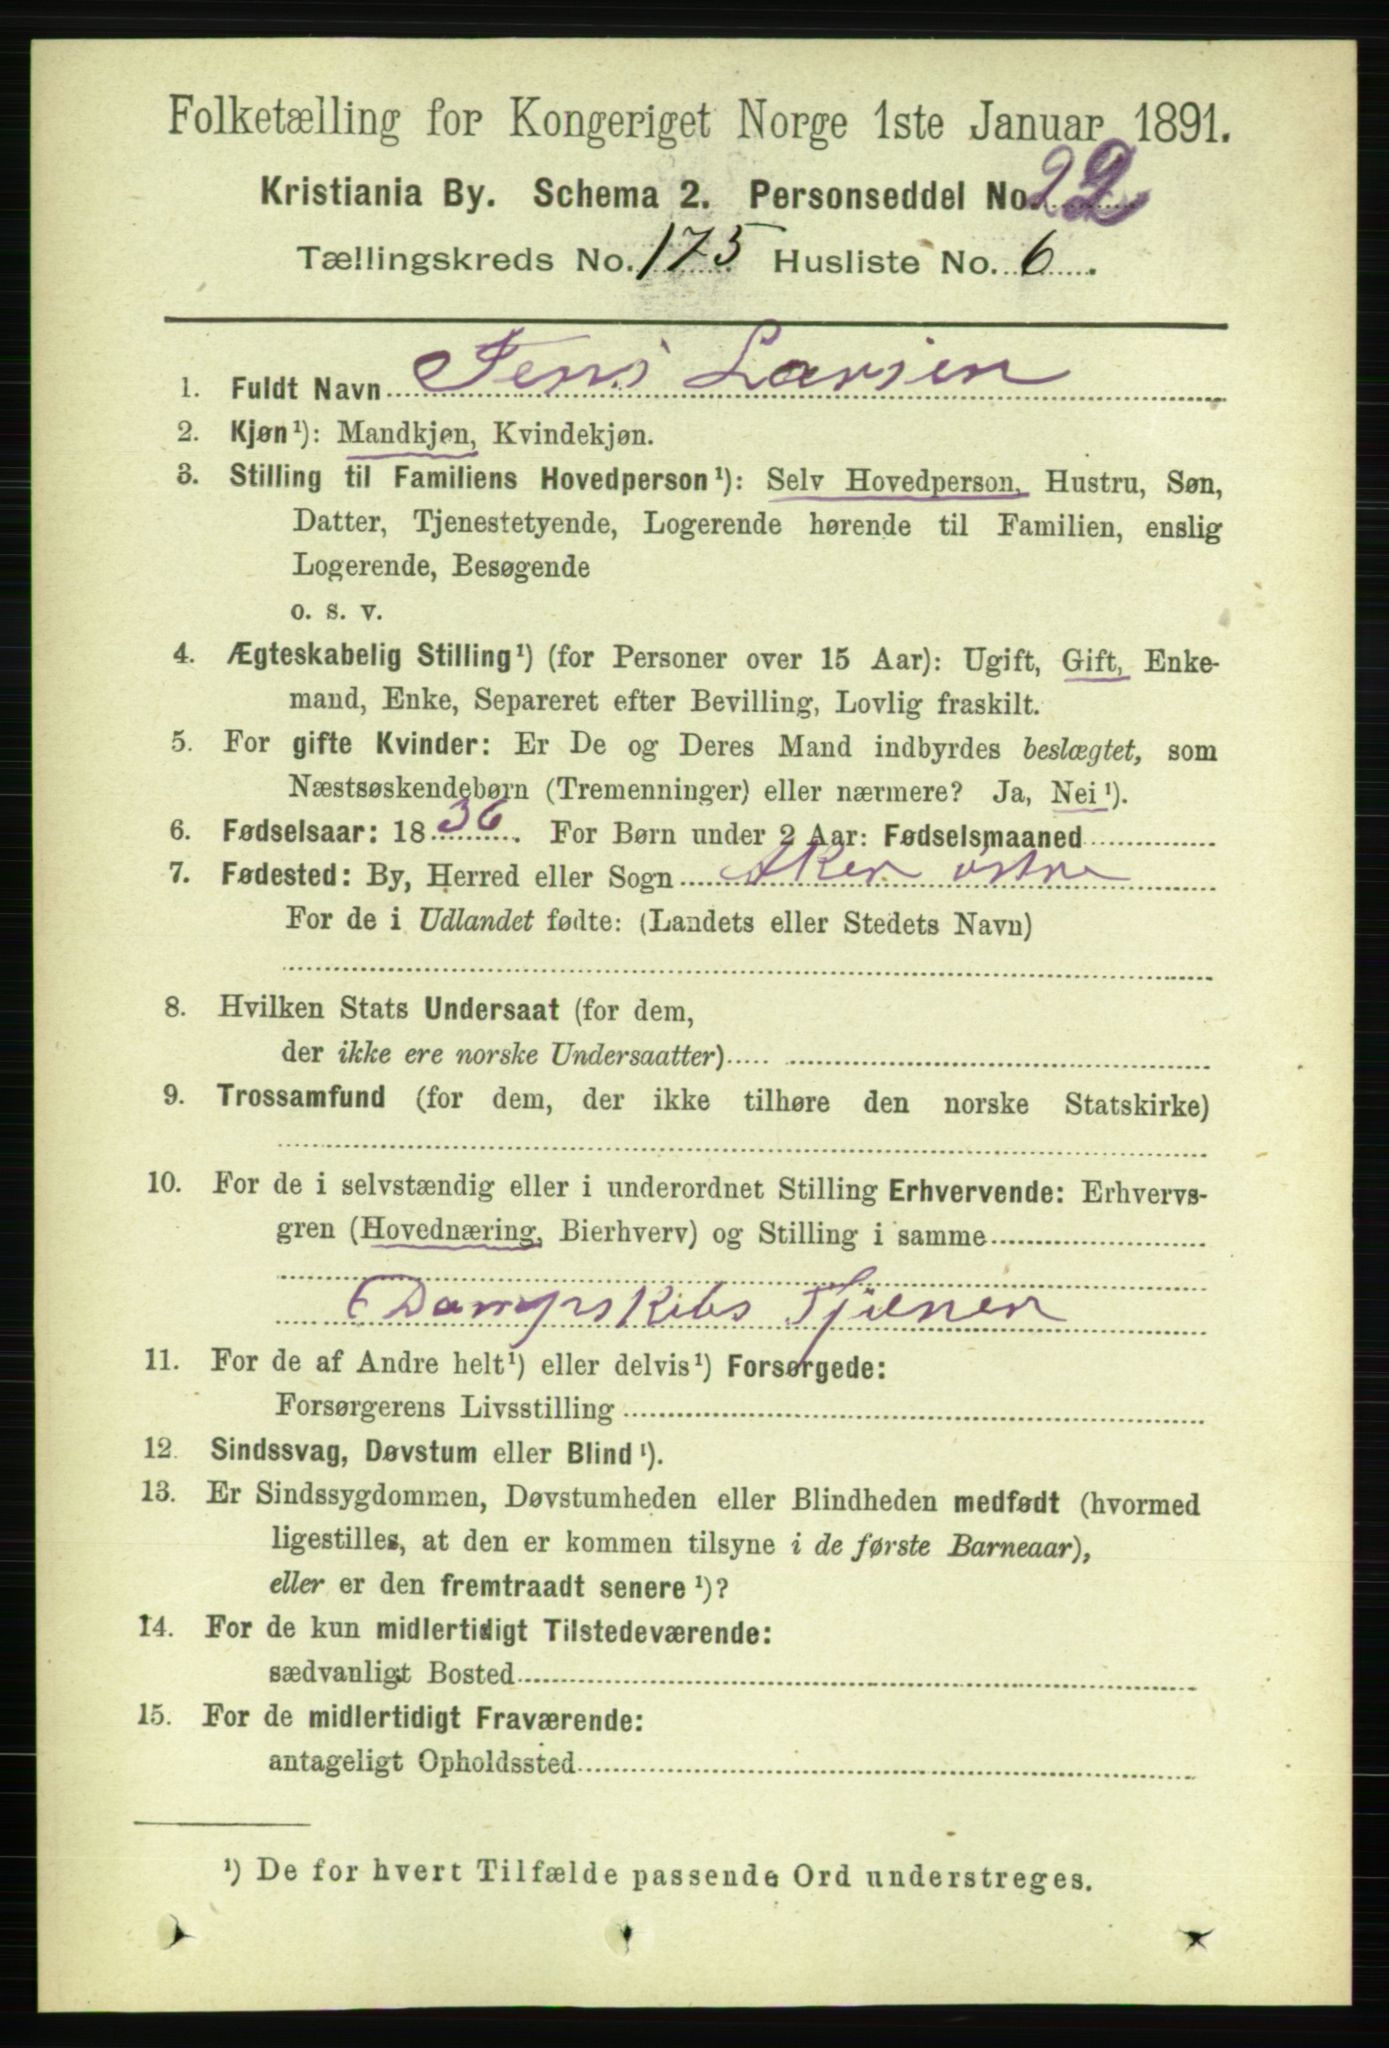 Folketælling for Kongeriget Norge 1ste Januar 1891.
Kristiania By. Schema 2. Personseddel No. 22
Tællingskreds No. 175 Husliste No. 6.
1. Fuldt Navn Jens Larsen
2. Kjøn¹): Mandkjøn, Kvindekjøn.
3. Stilling til Familiens Hovedperson¹): Selv Hovedperson, Hustru, Søn,
Datter, Tjenestetyende, Logerende hørende til Familien, enslig
Logerende, Besøgende
o. s. v.
4. Ægteskabelig Stilling¹) (for Personer over 15 Aar): Ugift, Gift, Enke-
mand, Enke, Separeret efter Bevilling, Lovlig fraskilt.
5. For gifte Kvinder: Er De og Deres Mand indbyrdes beslægtet, som
Næstsøskendebørn (Tremenninger) eller nærmere? Ja, Nei¹).
6. Fødselsaar: 1836. For Børn under 2 Aar: Fødselsmaaned
7. Fødested: By, Herred eller Sogn Aker østre
For de i Udlandet fødte: (Landets eller Stedets Navn)
8. Hvilken Stats Undersaat (for dem,
der ikke ere norske Undersaatter)
9. Trossamfund (for dem, der ikke tilhøre den norske Statskirke)
10. For de i selvstændig eller i underordnet Stilling Erhvervende: Erhvervs-
gren (Hovednæring, Bierhverv) og Stilling i samme
Dampskibs Tjener
11. For de af Andre helt¹) eller delvis¹) Forsørgede:
Forsørgerens Livsstilling
12. Sindssvag, Døvstum eller Blind¹).
13. Er Sindssygdommen, Døvstumheden eller Blindheden medfødt (hvormed
ligestilles, at den er kommen tilsyne i de første Barneaar),
eller er den fremtraadt senere¹)?
14. For de kun midlertidigt Tilstedeværende:
sædvanligt Bosted
15. For de midlertidigt Fraværende:
antageligt Opholdssted
¹) De for hvert Tilfælde passende Ord understreges.